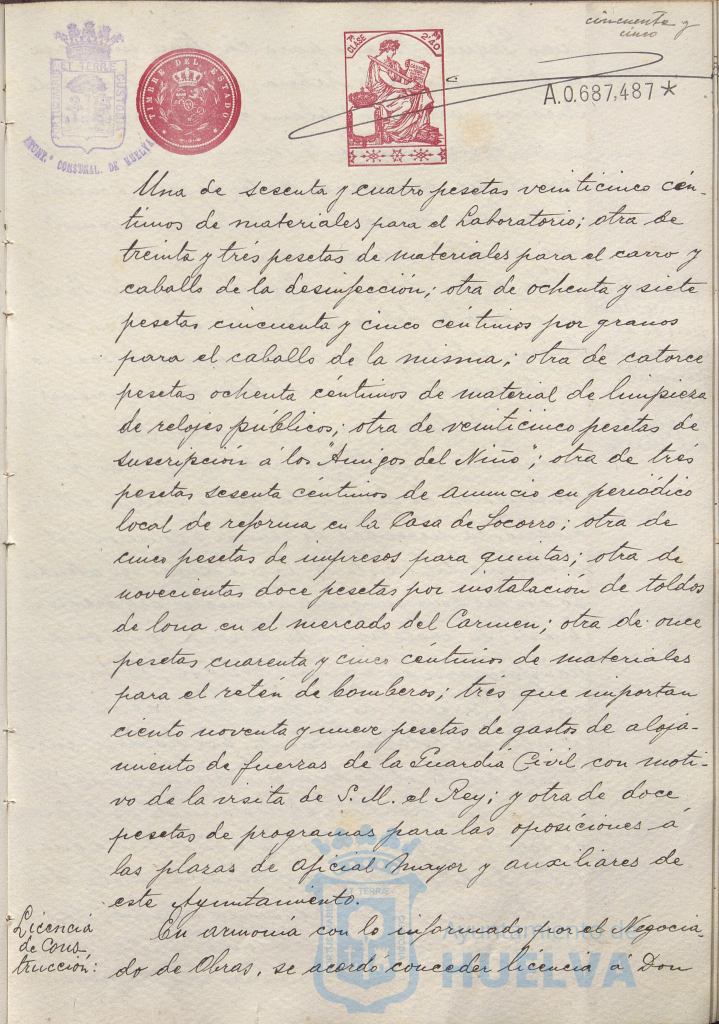 cincuenta y
cinco
PORTUS MARIS ET TERRÆ CUSTODIA
EXCMO. CONSUNAL. DE HUELVA
TIMBRE DEL ESTADO
CLASE 7ª
2'40
A.0.687,487*
Una de sesenta y cuatro pesetas veinticinco cén-
timos de materiales para el Laboratorio; otra de
treinta y trés pesetas de materiales para el carro y
caballo de la desinfección; otra de ochenta y siete
pesetas cincuenta y cinco céntimos por granos
para el caballo de la misma; otra de catorce
pesetas ochenta céntimos de material de limpieza
de relojes públicos; otra de veinticinco pesetas de
suscripción á los "Amigos del Niño"; otra de trés
pesetas sesenta céntimos de anuncio en periódico
local de reforma en la Casa de Socorro; otra de
cinco pesetas de impresos para quintas; otra de
novecientas doce pesetas por instalación de toldos
de lona en el mercado del Carmen; otra de once
pesetas cuarenta y cinco céntimos de materiales
para el retén de bomberos; trés que importan
ciento noventa y nueve pesetas de gastos de aloja-
miento de fuerzas de la Guardia Civil con moti-
vo de la visita de S. M. el Rey; y otra de doce
pesetas de programas para las oposiciones á
las plazas de Oficial Mayor y auxiliares de
este Ayuntamiento.
Licencia
de Cons
trucción:
En armonía con lo informado por el Negocia-
do de Obras, se acordó conceder licencia á Don
Ayuntamiento de
HUELVA